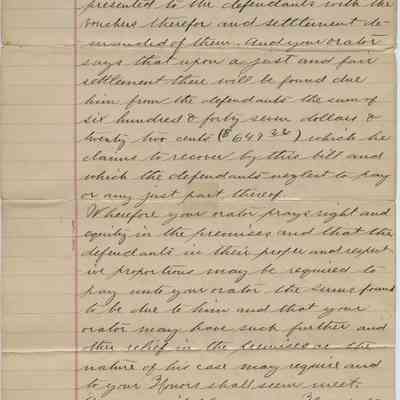 presented to the defendants with the
vouchers therefor and settlement de-
manded of them. And your orator
says that upon a just and fair
settlement there will be found due
him from the defendants the sum of
six hundred & forty seven dollars &
twenty two cents ($647 22) which he
claims to recover by this bill and
which the defendants neglect to pay
or any just part thereof.
Wherefore your orator prays right and
equity in the premises and that the
defendants in their proper and respect
ive proportions may be required to
pay unto your orator the sums found
to be due to him and that your
orator may have such further and
other relief in the premises as the
nature of his case may require and
to your Honors shall seem meet.